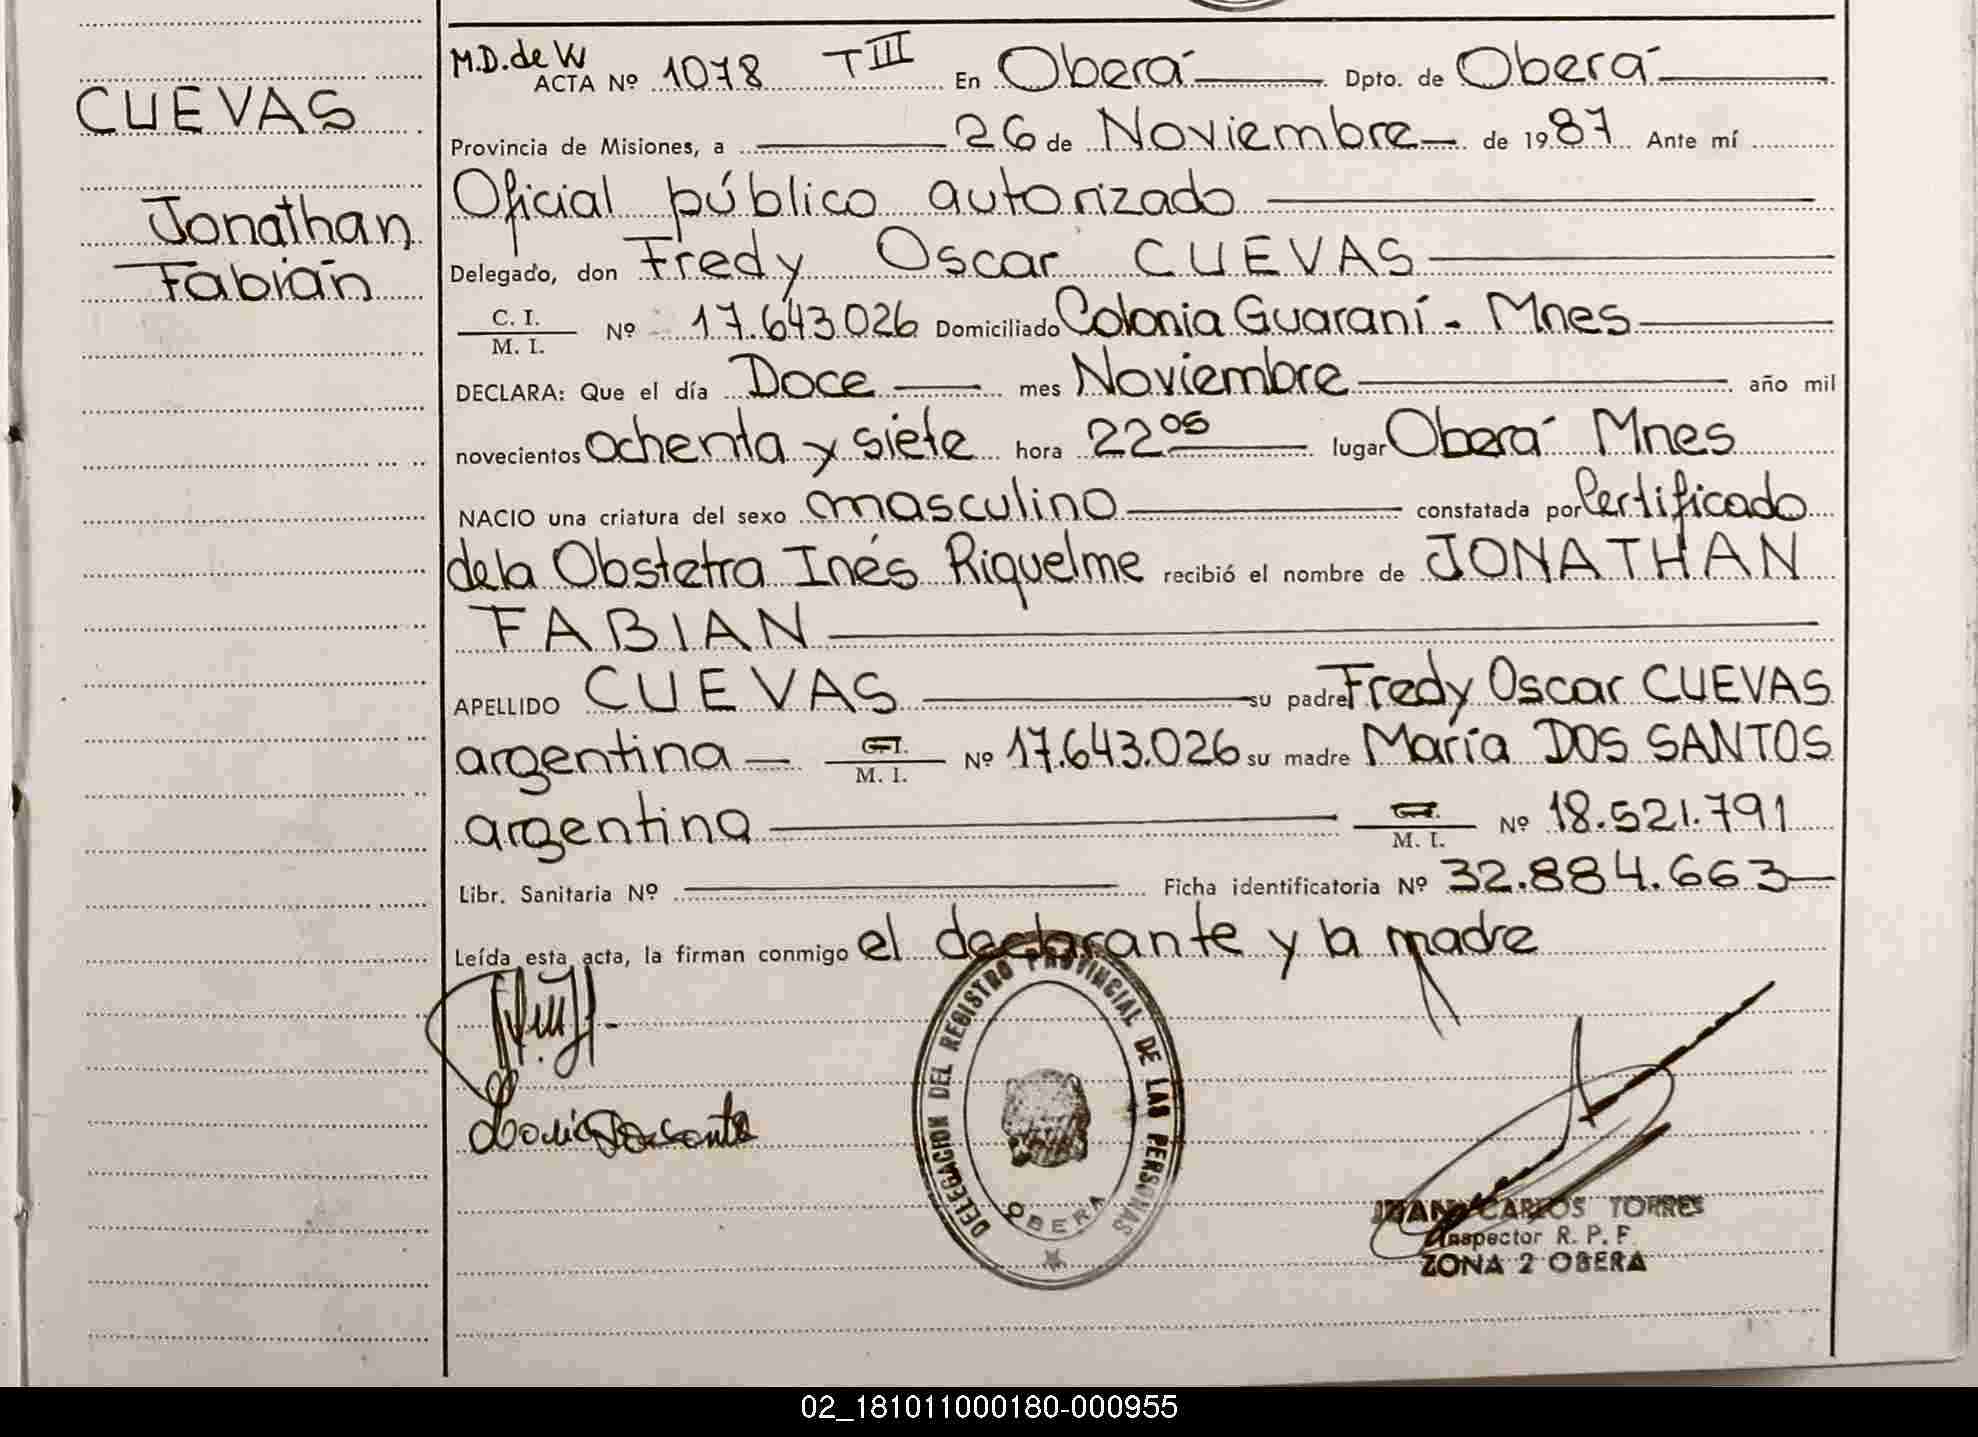 CUEVAS
Jonathan
Fabián
M.D. de W
ACTA Nº 1078 T III En Oberá Dpto. de Oberá
Provincia de Misiones, a 26 de Noviembre de 1987 Ante mí
Oficial público autorizado
Delegado, don Fredy Oscar CUEVAS
C. I.
M. I. Nº 17.643.026 Domiciliado Colonia Guaraní - Mnes
DECLARA: Que el día Doce mes Noviembre año mil
novecientos ochenta y siete hora 22 05 lugar Oberá Mnes
NACIO una criatura del sexo masculino constatada por Certificado
de la Obstetra Inés Riquelme recibió el nombre de JONATHAN
FABIAN
APELLIDO CUEVAS su padre Fredy Oscar CUEVAS
argentina C. I. M. I. Nº 17.643.026 su madre María DOS SANTOS
argentina C. I. M. I. Nº 18.521.791
Libr. Sanitaria Nº Ficha identificatoria Nº 32.884.663
Leída esta acta, la firman conmigo el declarante y la madre
DELEGACION DEL REGISTRO PROVINCIAL DE LAS PERSONAS
OBERA
JUAN CARLOS TORRES
Inspector R. P. F
ZONA 2 OBERA
02_181011000180-000955